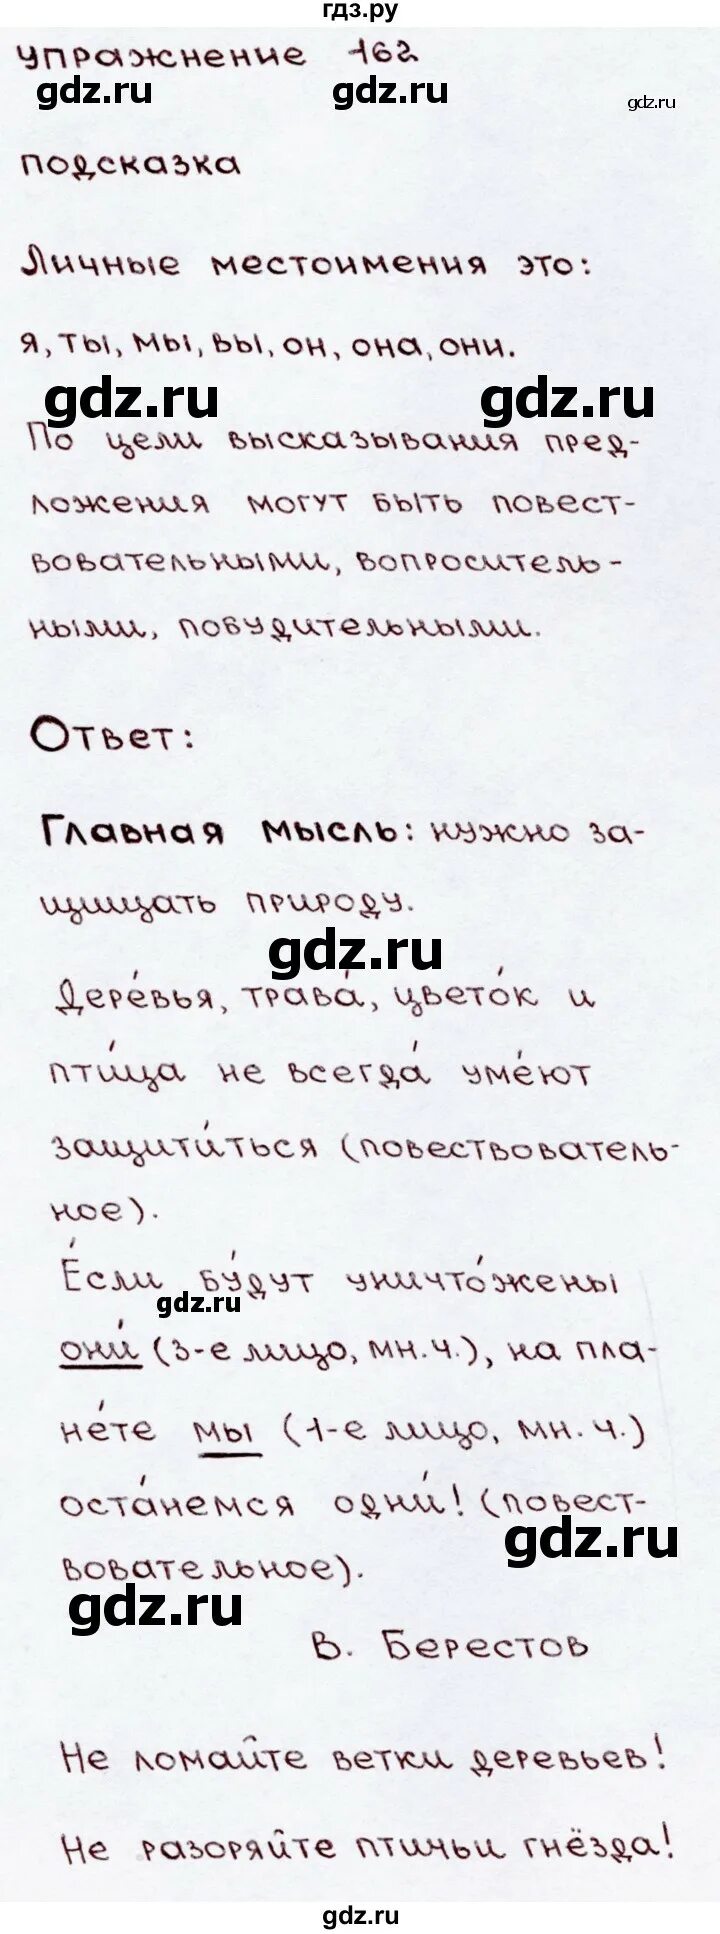 гдз.ру
упражнение 162
gdz.ru gdz.ru gdz.ru
подсказка
Личные местоимения это:
я, ты, мы, вы, он, она, они.
gdz.ru gdz.ru
По цели высказывания пред-
ложения могут быть повест-
вовательными, вопроситель-
ными, побудительными.
Ответ:
Главная мысль: нужно за-
щищать природу.
gdz.ru
Дере́вья, трава́, цвето́к и
пти́ца не всегда́ уме́ют
защити́ться (повествователь-
ное).
Е́сли бу́дут уничто́жены
gdz.ru
они́ (3-е лицо, мн.ч.), на пла-
не́те мы (1-е лицо, мн.ч.)
оста́немся одни́! (повест-
gdz.ru
вовательное).
gdz.ru
В. Берестов
Не ломайте ветки деревьев!
Не разоряйте птичьи гнёзда!
gdz.ru